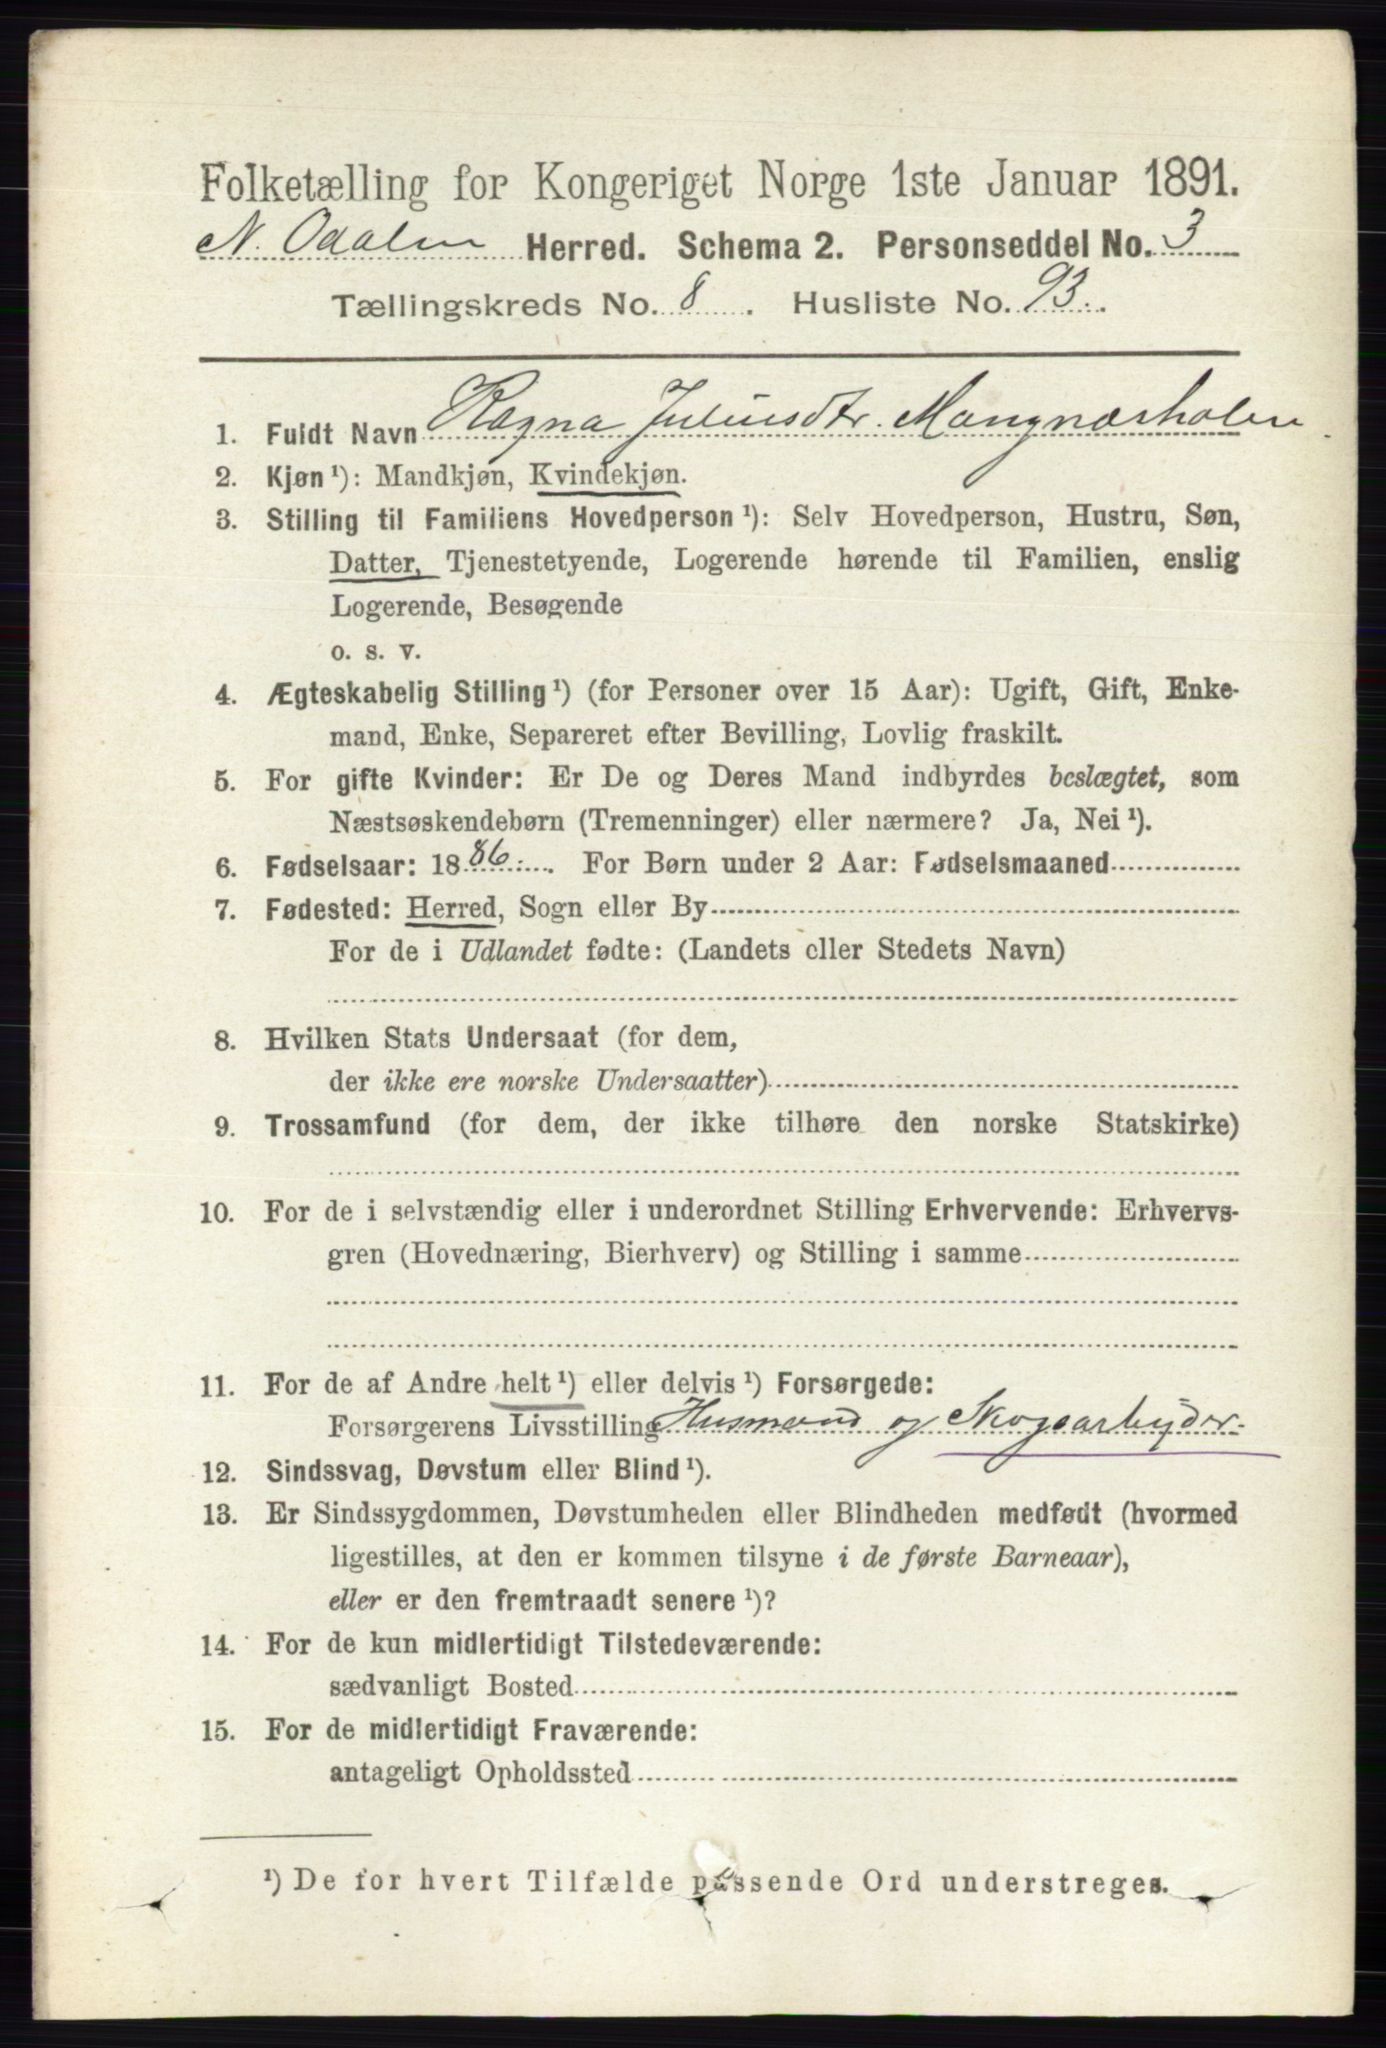 Folketælling for Kongeriget Norge 1ste Januar 1891.
N. Odalen Herred. Schema 2. Personseddel No. 3
Tællingskreds No. 8. Husliste No. 93.
1. Fuldt Navn Ragna Juliusdtr. Mangnæsholen
2. Kjøn ¹): Mandkjøn, Kvindekjøn.
3. Stilling til Familiens Hovedperson ¹): Selv Hovedperson, Hustru, Søn,
Datter, Tjenestetyende, Logerende hørende til Familien, enslig
Logerende, Besøgende
o. s. v.
4. Ægteskabelig Stilling ¹) (for Personer over 15 Aar): Ugift, Gift, Enke-
mand, Enke, Separeret efter Bevilling, Lovlig fraskilt.
5. For gifte Kvinder: Er De og Deres Mand indbyrdes beslægtet, som
Næstsøskendebørn (Tremenninger) eller nærmere? Ja, Nei ¹).
6. Fødselsaar: 1886. For Børn under 2 Aar: Fødselsmaaned
7. Fødested: Herred, Sogn eller By
For de i Udlandet fødte: (Landets eller Stedets Navn)
8. Hvilken Stats Undersaat (for dem,
der ikke ere norske Undersaatter)
9. Trossamfund (for dem, der ikke tilhøre den norske Statskirke)
10. For de i selvstændig eller i underordnet Stilling Erhvervende: Erhvervs-
gren (Hovednæring, Bierhverv) og Stilling i samme
11. For de af Andre helt ¹) eller delvis ¹) Forsørgede:
Forsørgerens Livsstilling Husmand og Skogsarbyder.
12. Sindssvag, Døvstum eller Blind ¹).
13. Er Sindssygdommen, Døvstumheden eller Blindheden medfødt (hvormed
ligestilles, at den er kommen tilsyne i de første Barneaar),
eller er den fremtraadt senere ¹)?
14. For de kun midlertidigt Tilstedeværende:
sædvanligt Bosted
15. For de midlertidigt Fraværende:
antageligt Opholdssted
¹) De for hvert Tilfælde passende Ord understreges.